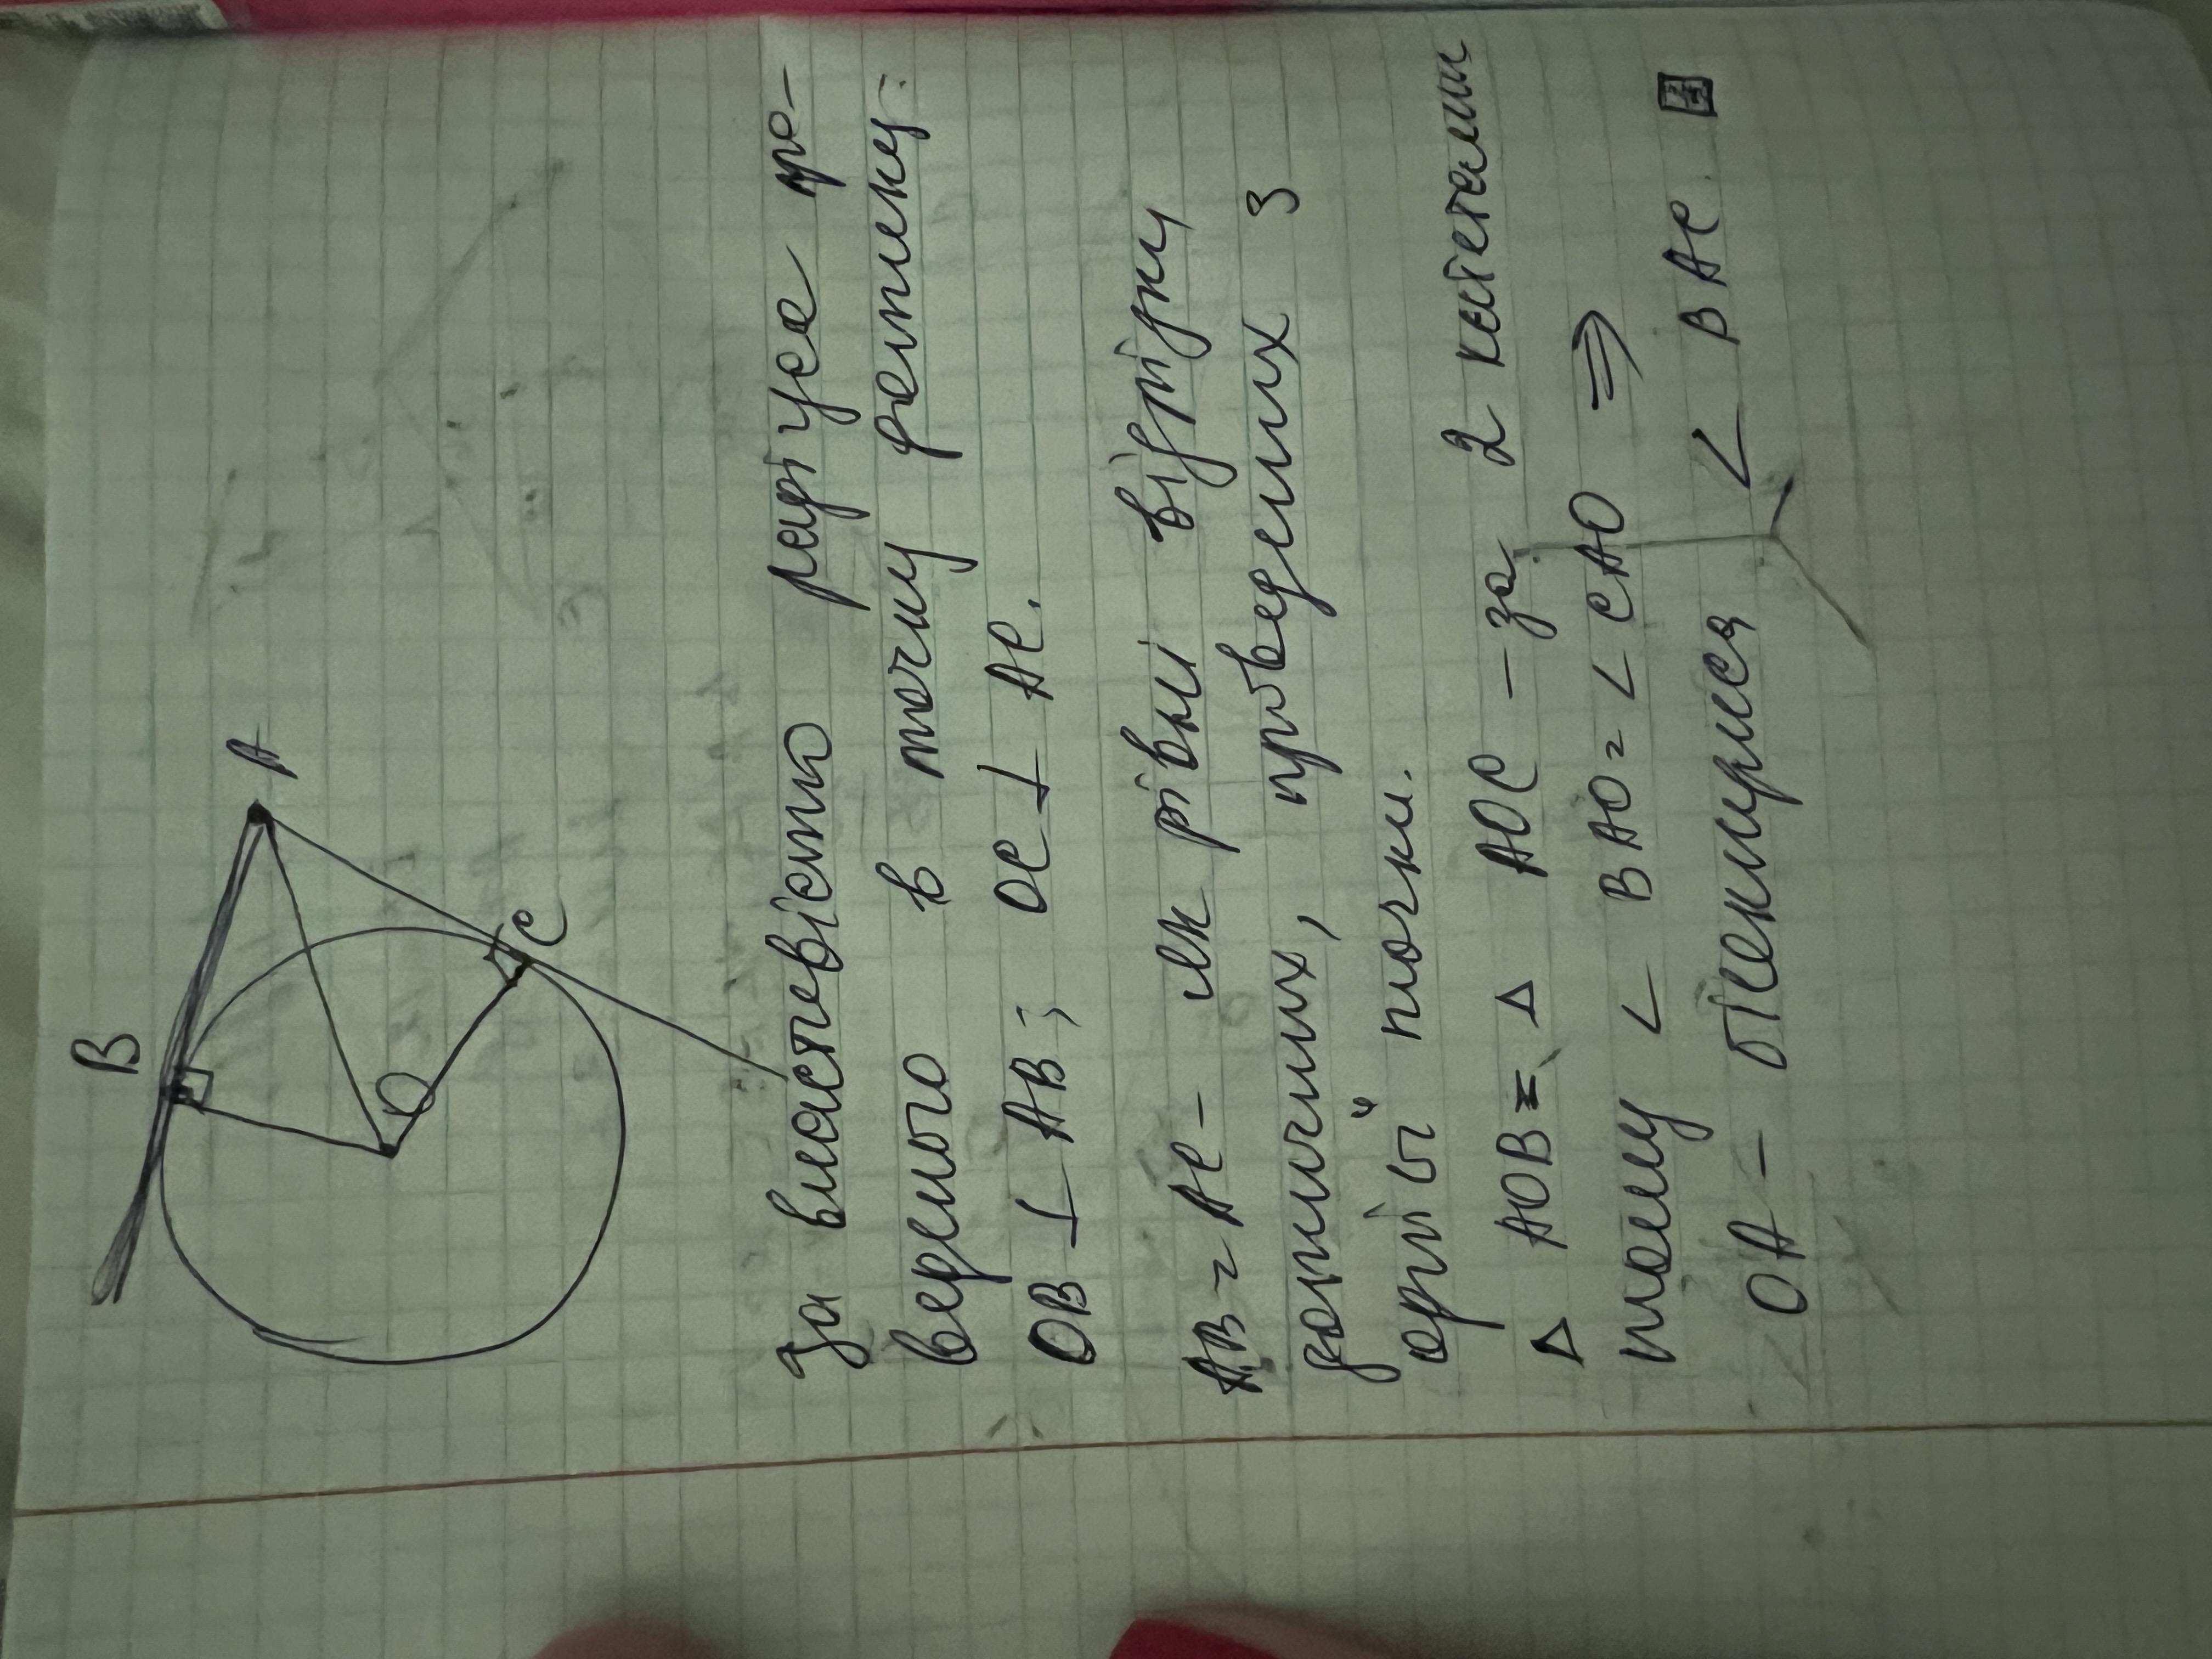 B
A
O
C
За властивістю радіуса про-
веденого в точку дотику:
OB ⊥ AB; OC ⊥ AC.
AB = AC - як рівні відрізки
дотичних, проведених з
однієї точки.
Δ AOB = Δ AOC - за 2 катетами
тому ∠ BAO = ∠ CAO ⇒
OA - бісектриса ∠ BAC.